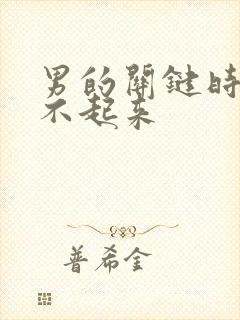 男的關鍵時
不起来
普希金